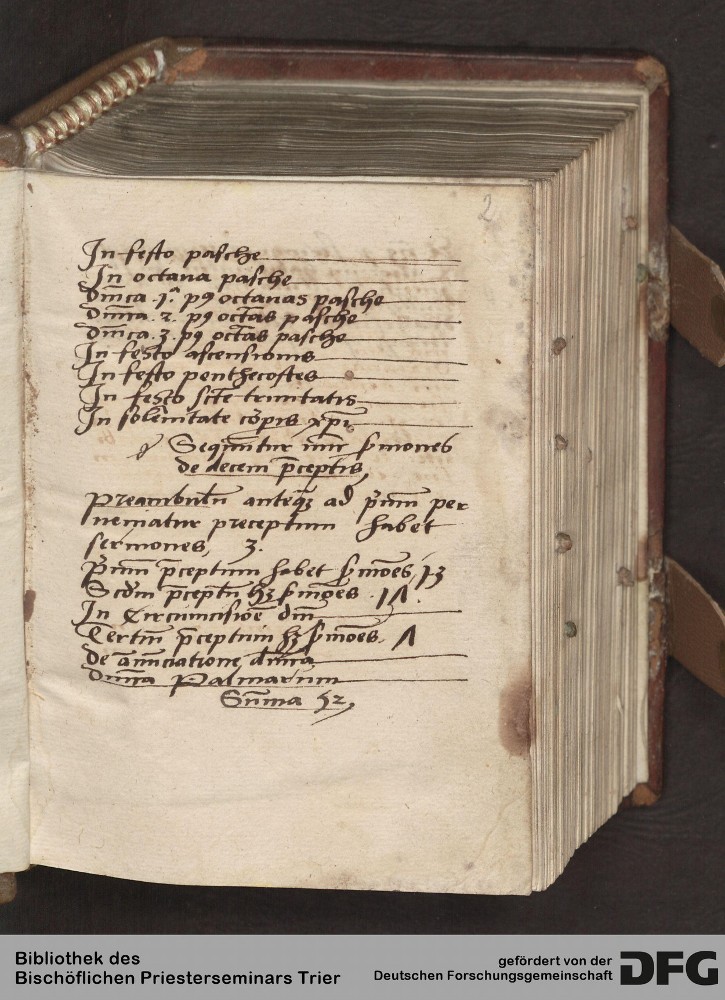 2
In festo pasche
In octaua pasche
Dnica .1.ª p9 octauas pasche
Dnica .2. p9 octãs pasche
Dnica .3. p9 octãs pasche
In festo ascensionis
In festo penthecostes
In festo scte trinitatis
In solẽnitate corpis xpi
Sequntur iiii smones
de decem pceptis
Preambulũ anteq; ad pmum per
ueniatur preceptum habet
sermones, 3.
Pmum pceptum habet smões, 13
Scdm pceptũ hz smões .
In Circumcisiõe dni
Tertiũ pceptum hz smões.
de anũciatione dnica
Dnica Palmarum
Sũma 52,
Bibliothek des
Bischöflichen Priesterseminars Trier
gefördert von der
Deutschen Forschungsgemeinschaft
DFG